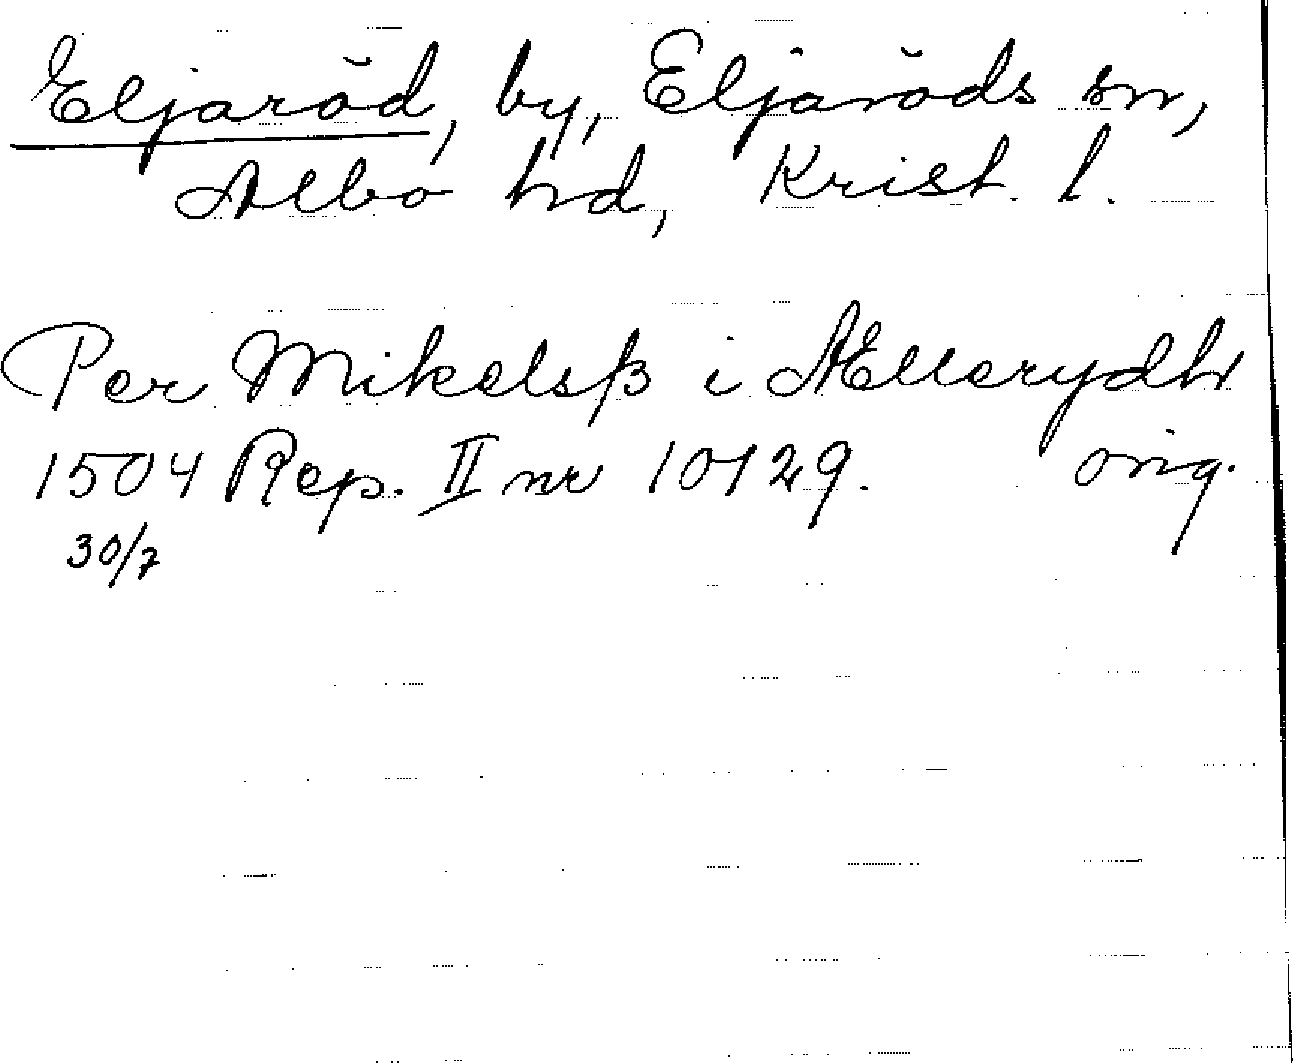 Eljaröd, by, Eljaröds sn,
Albo hd, Krist. l.
Per Mikelsß i Ællerydh
1504 Rep. II nr 10129. orig.
30/7